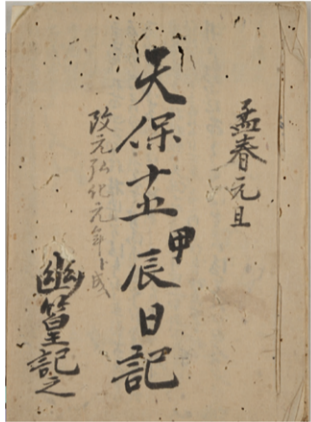 孟春元旦
天保十五甲辰日記
改元弘化元年ト成
幽篁記之